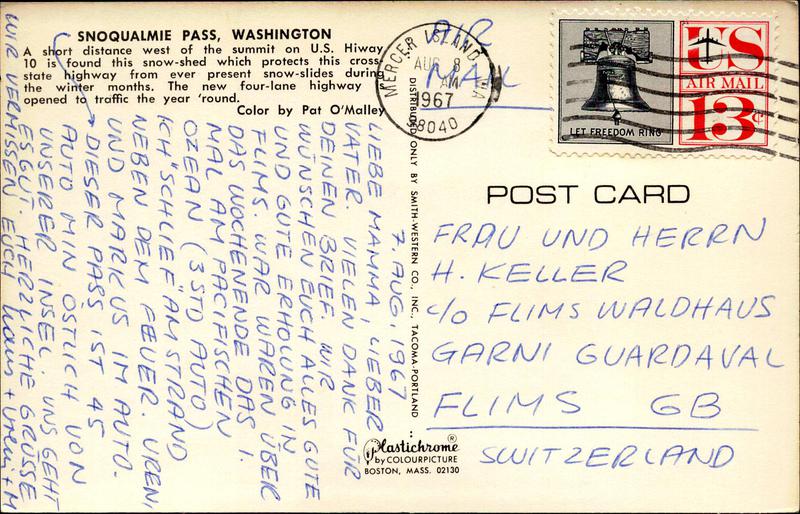 SNOQUALMIE PASS, WASHINGTON
A short distance west of the summit on U.S. Hiway
10 is found this snow-shed which protects this cross-
state highway from ever present snow-slides during
the winter months. The new four-lane highway
opened to traffic the year 'round.
Color by Pat O'Malley
AIR
MAIL
MERCER ISLAND WA
AUG 8
AM
1967
98040
LET FREEDOM RING
US
AIR MAIL
13¢
DISTRIBUTED ONLY BY SMITH-WESTERN CO., INC., TACOMA-PORTLAND
POST CARD
FRAU UND HERRN
H. KELLER
c/o FLIMS WALDHAUS
GARNI GUARDAVAL
FLIMS GB
SWITZERLAND
7. AUG. 1967
LIEBE MAMMA, LIEBER
VATER. VIELEN DANK FÜR
DEINEN BRIEF. WIR
WÜNSCHEN EUCH ALLES GUTE
UND GUTE ERHOLUNG IN
FLIMS. WAR WAREN ÜBER
DAS WOCHENENDE DAS 1.
MAL AM PACIFISCHEN
OZEAN (3 STD AUTO)
ICH "SCHLIEF" AM STRAND
NEBEN DEM FEUER. URENI
UND MARKUS IM AUTO.
DIESER PASS IST 45
AUTO MIN ÖSTLICH VON
UNSERER INSEL. UNS GEHT
ES GUT. HERZLICHE GRÜSSE
WIR VERMISSEN EUCH + M
Plastichrome®
by COLOURPICTURE
BOSTON, MASS. 02130